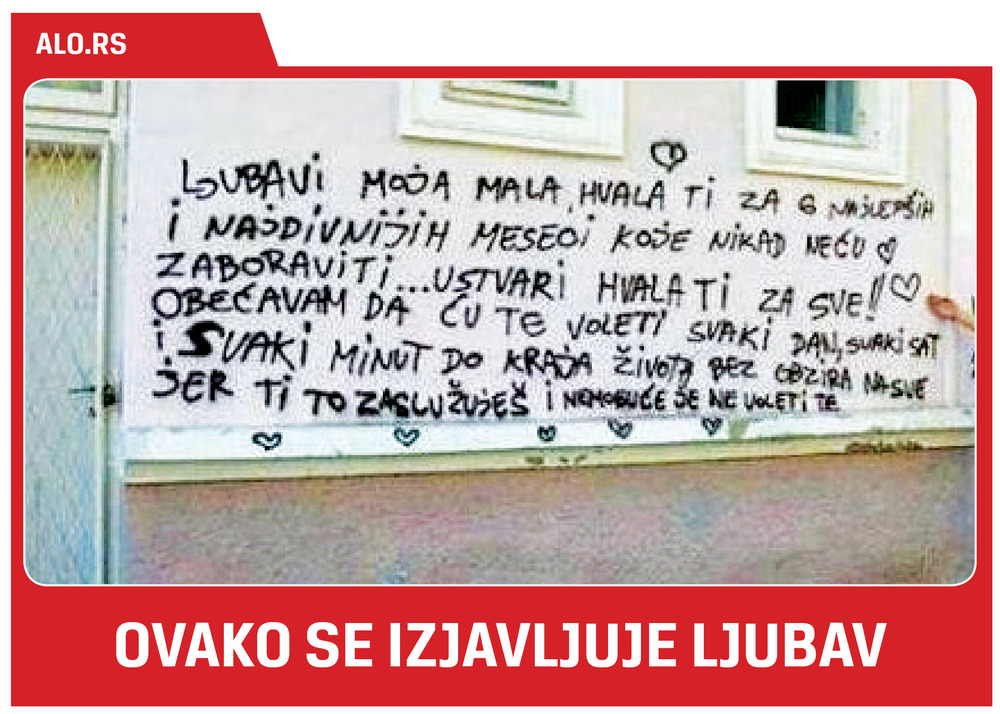 ALO.RS
LJUBAVi MOJA MALA, HVALA Ti ZA 6 NAJLEPŠiH
i NAJDiVNiJiH MESECi KOJE NiKAD NEĆU
ZABORAViTi...USTVARi HVALA Ti ZA SVE!!
OBEĆAVAM DA ĆU TE VOLETi SVAKi DAN, SVAKi SAT
i SVAKi MiNUT DO KRAJA ŽiVOTA BEZ OBZiRA NA SVE
JER Ti TO ZASLUŽUJEŠ i NEMOGUĆE JE NE VOLETi TE
OVAKO SE IZJAVLJUJE LJUBAV